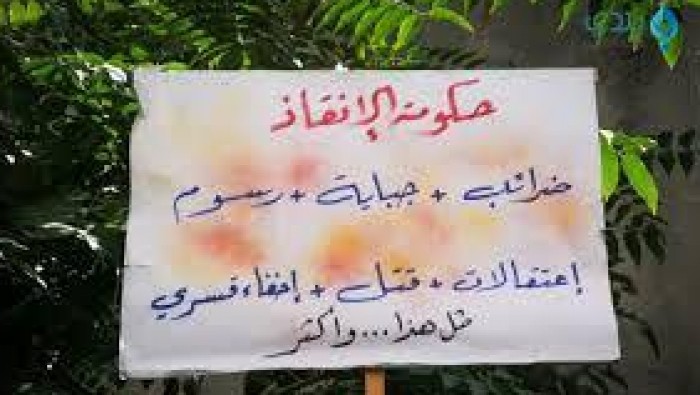 حكومة الإنقاذ
ضرائب + جباية + رسوم
إعتقالات + قتل + إخفاء قسري
كل هذا... وأكثر